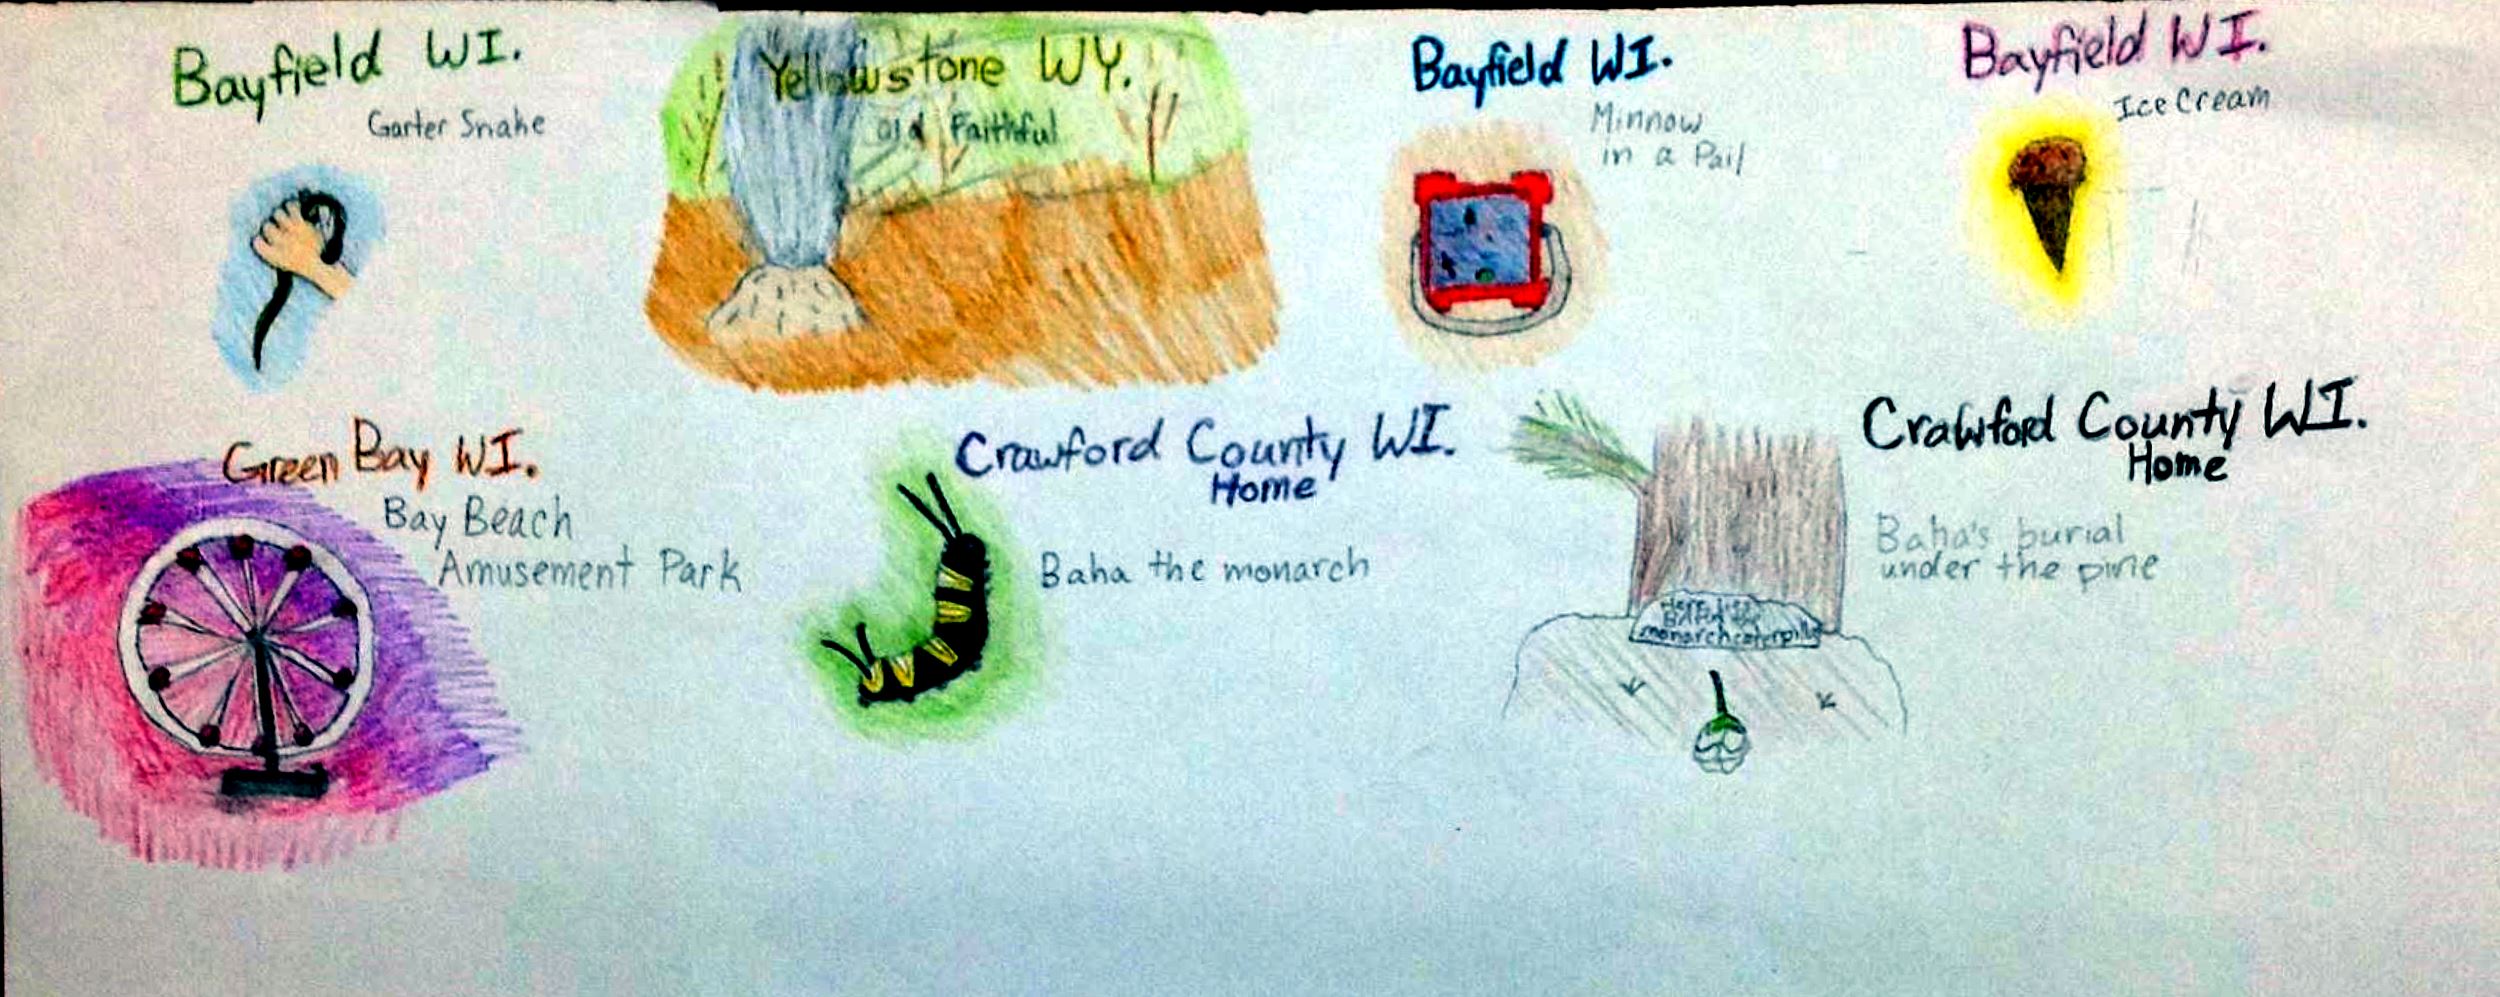 Bayfield WI.
Garter Snake
Yellowstone WY.
Old Faithful
Bayfield WI.
Minnow
in a Pail
Bayfield WI.
Ice Cream
Green Bay WI.
Bay Beach
Amusement Park
Crawford County WI.
Home
Baha the monarch
Crawford County WI.
Home
Baha's burial
under the pine
Here lies
Baha the
monarch caterpillar